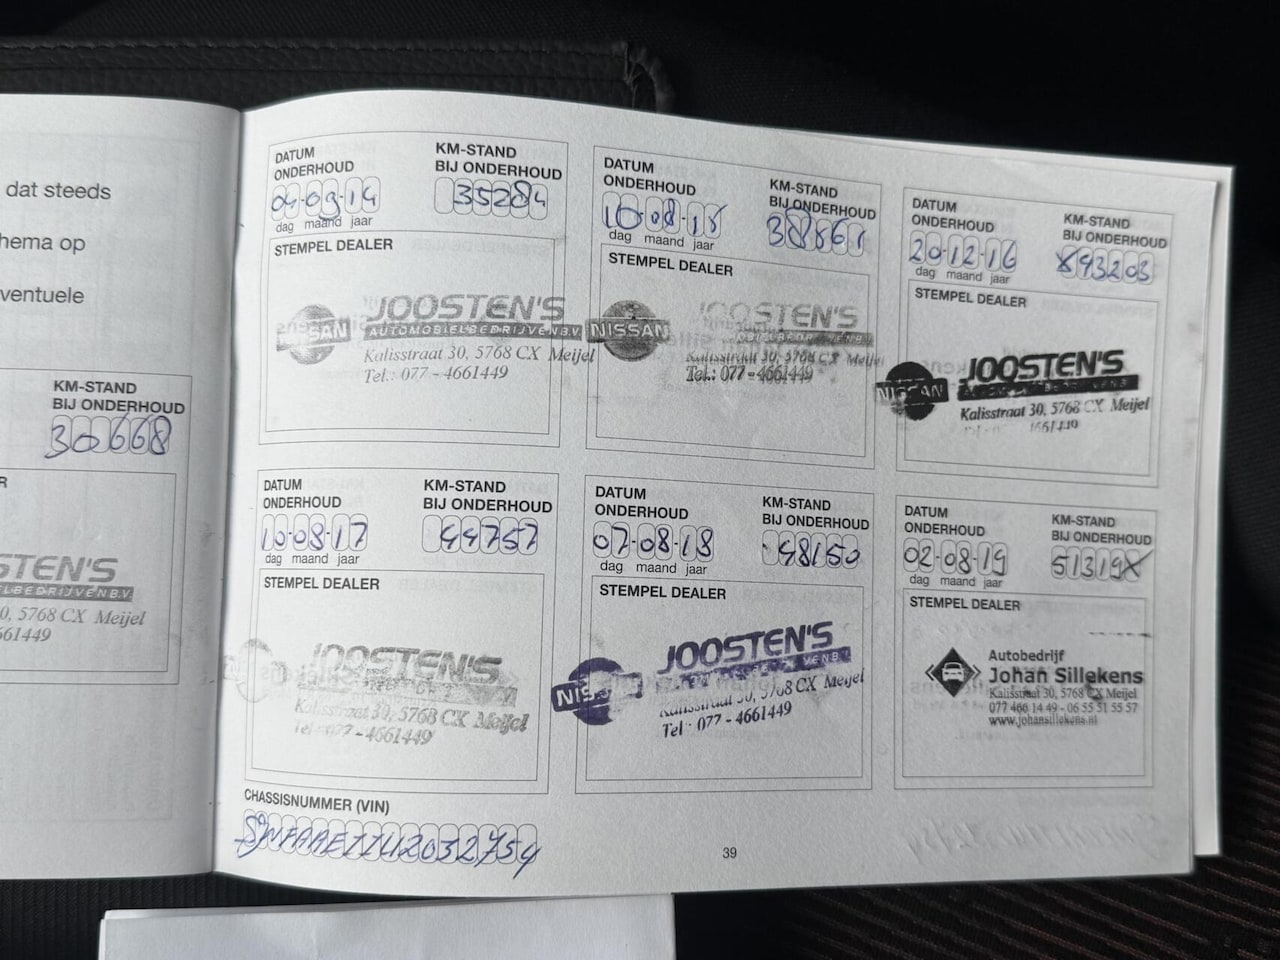 dat steeds
hema op
ventuele
KM-STAND
BIJ ONDERHOUD
30668
R
STEN'S
ELBEDRIJVEN B.V.
0, 5768 CX Meijel
661449
DATUM
ONDERHOUD
04-09-14
dag maand jaar
KM-STAND
BIJ ONDERHOUD
35284
STEMPEL DEALER
SAN
JOOSTEN'S
AUTOMOBIELBEDRIJVEN B.V.
Kalisstraat 30, 5768 CX Meijel
Tel.: 077 - 4661449
DATUM
ONDERHOUD
10-08-15
dag maand jaar
KM-STAND
BIJ ONDERHOUD
38861
STEMPEL DEALER
NISSAN
JOOSTEN'S
Kalisstraat 30, 5768 CX Meijel
Tel.: 077 - 4661449
DATUM
ONDERHOUD
20-12-16
dag maand jaar
KM-STAND
BIJ ONDERHOUD
93203
STEMPEL DEALER
NISSAN
JOOSTEN'S
Kalisstraat 30, 5768 CX Meijel
DATUM
ONDERHOUD
10-08-17
dag maand jaar
KM-STAND
BIJ ONDERHOUD
44757
STEMPEL DEALER
JOOSTEN'S
Kalisstraat 30, 5768 CX Meijel
Tel : 077 - 4661449
DATUM
ONDERHOUD
07-08-18
dag maand jaar
KM-STAND
BIJ ONDERHOUD
48150
STEMPEL DEALER
NISSAN
JOOSTEN'S
Kalisstraat 30, 5768 CX Meijel
Tel : 077 - 4661449
DATUM
ONDERHOUD
02-08-19
dag maand jaar
KM-STAND
BIJ ONDERHOUD
51319X
STEMPEL DEALER
Autobedrijf
Johan Sillekens
Kalisstraat 30, 5768 CX Meijel
077 466 14 49 - 06 55 51 55 57
www.johansillekens.nl
CHASSISNUMMER (VIN)
39